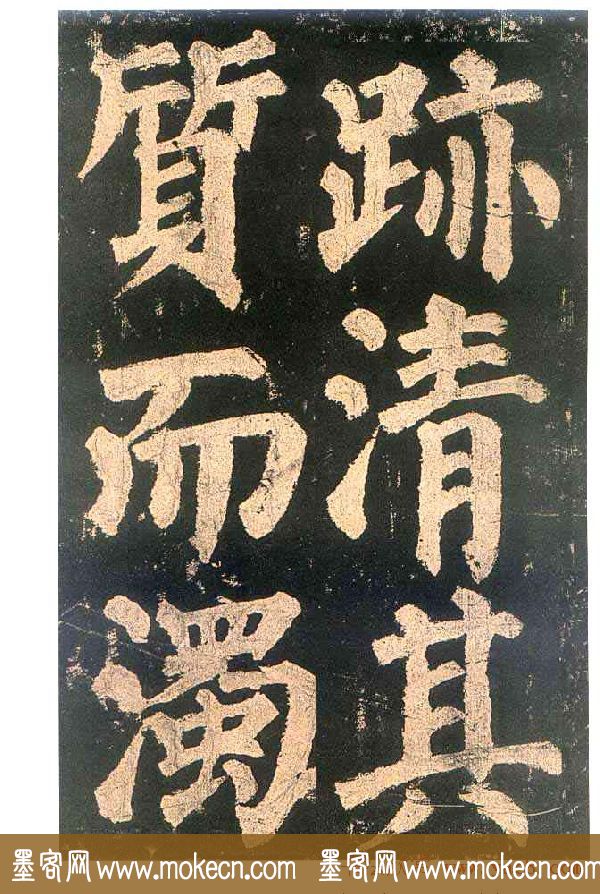 跡清其
質而濁
墨客网 www.mokecn.com 墨客网 www.mokecn.com